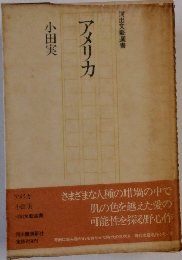 河出文藝選書
アメリカ
小田実
アメリカ
小田実
河出文藝選書
さまざまな人種の坩堝の中で
肌の色を越えた愛の
可能性を探る野心作